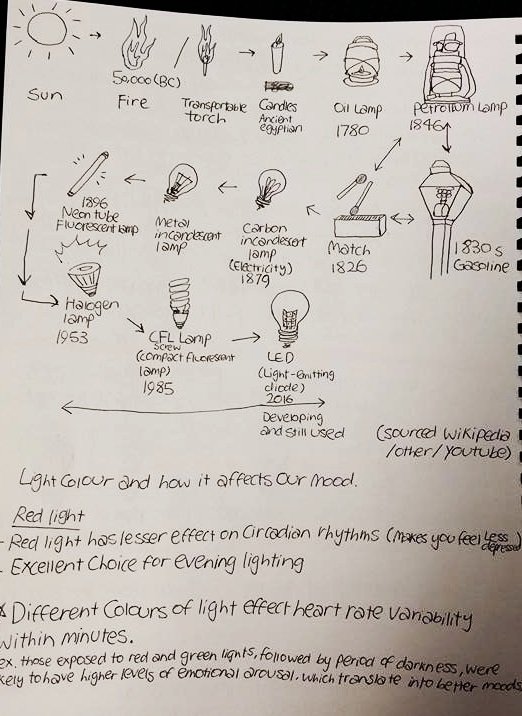 Sun
50,000 (BC)
Fire
Transportable
torch
Candles
Ancient
egyptian
Oil Lamp
1780
petrolium lamp
1846
1896
Neon tube
Fluorescent lamp
Metal
incandescent
lamp
Carbon
incandescent
lamp
(Electricity)
1879
Match
1826
1830s
Gasoline
Halogen
lamp
1953
CFL Lamp
Screw
(compact fluorescent
lamp)
1985
LED
(Light-emitting
diode)
2016
Developing
and still used
(sourced Wikipedia
/other/Youtube)
Light Colour and how it affects our mood.
Red light
- Red light has lesser effect on Circadian rhythms (Makes you feel less
depressed)
- Excellent Choice for evening lighting
* Different Colours of light effect heart rate variability
within minutes.
ex. those exposed to red and green lights, followed by period of darkness, were
kely to have higher levels of emotional arousal. which translate into better moods